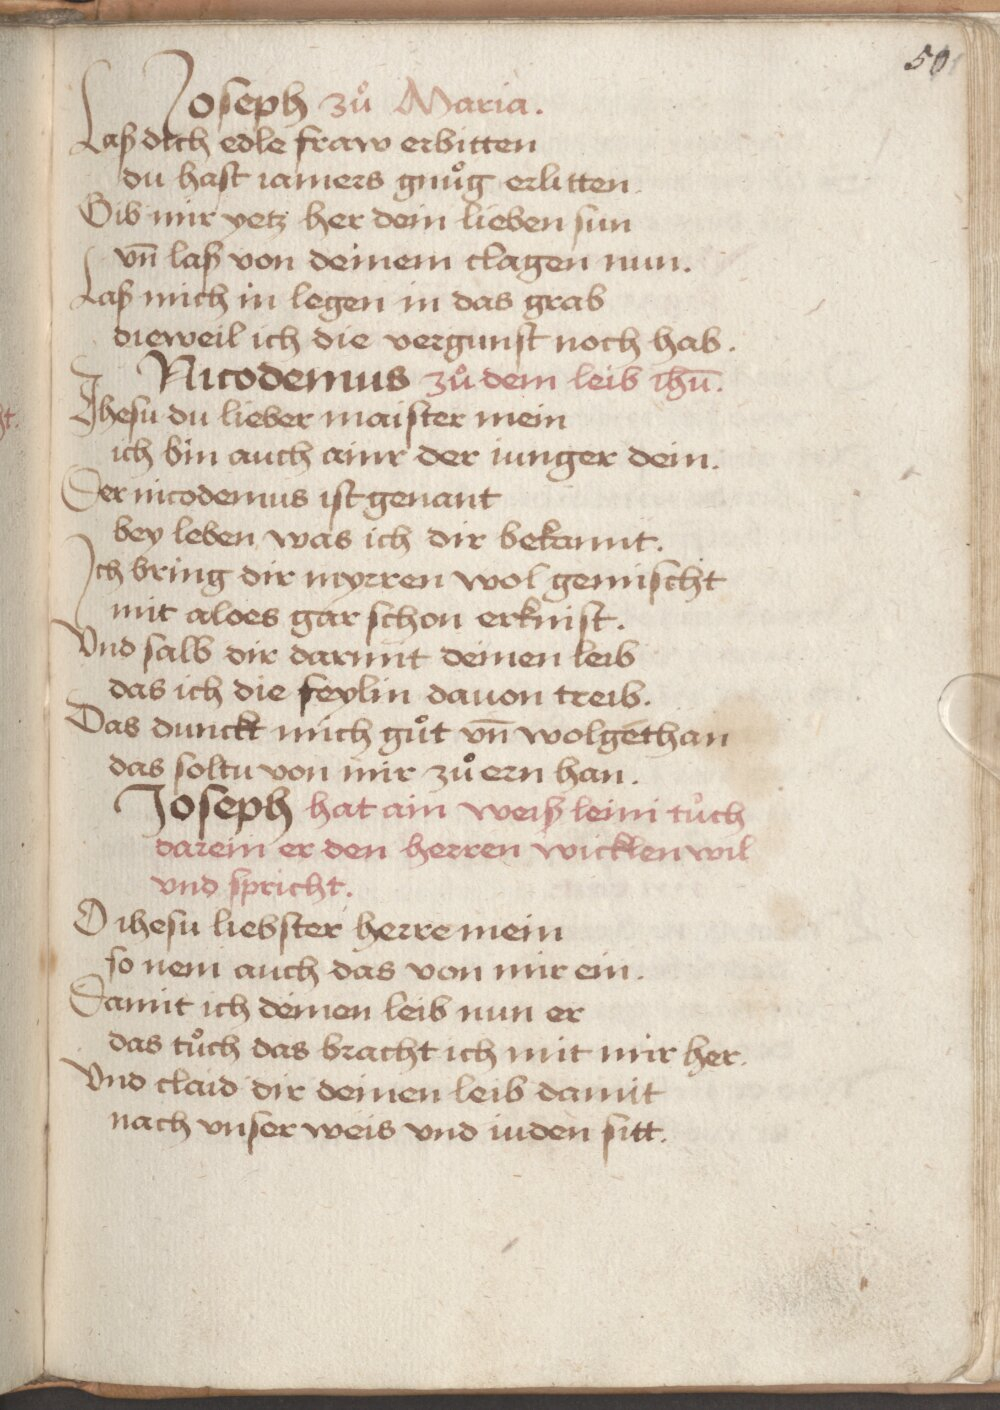 50
Joseph zů Maria.
Laß dich edle fraw erbitten
du hast iamers gnůg erlitten.
Gib mir yetz her dein lieben sun
vn̄ laß von deinem clagen nun.
Laß mich in legen in das grab
dieweil ich die vergunst noch hab.
Nicodemus zů dem leib ihū.
Jhesu du lieber maister mein
ich bin auch ainr der iunger dein.
Der nicodemus ist genant
bey leben was ich dir bekannt.
Ich bring dir myrren wol gemischt
mit aloes gar schon erknist.
Vnd salb dir darmit deinen leib
das ich die feylin dauon treib.
Das dunckt mich gůt vn̄ wolgethan
das soltu von mir zů ern han.
Joseph hat ain weiß leini tůch
darein er den herren wicklen wil
vnd spricht.
O ihesu liebster herre mein
so nem auch das von mir ein.
Damit ich deinen leib nun er
das tůch das bracht ich mit mir her.
Vnd claid dir deinen leib damit
nach vnser weis vnd iuden sitt.